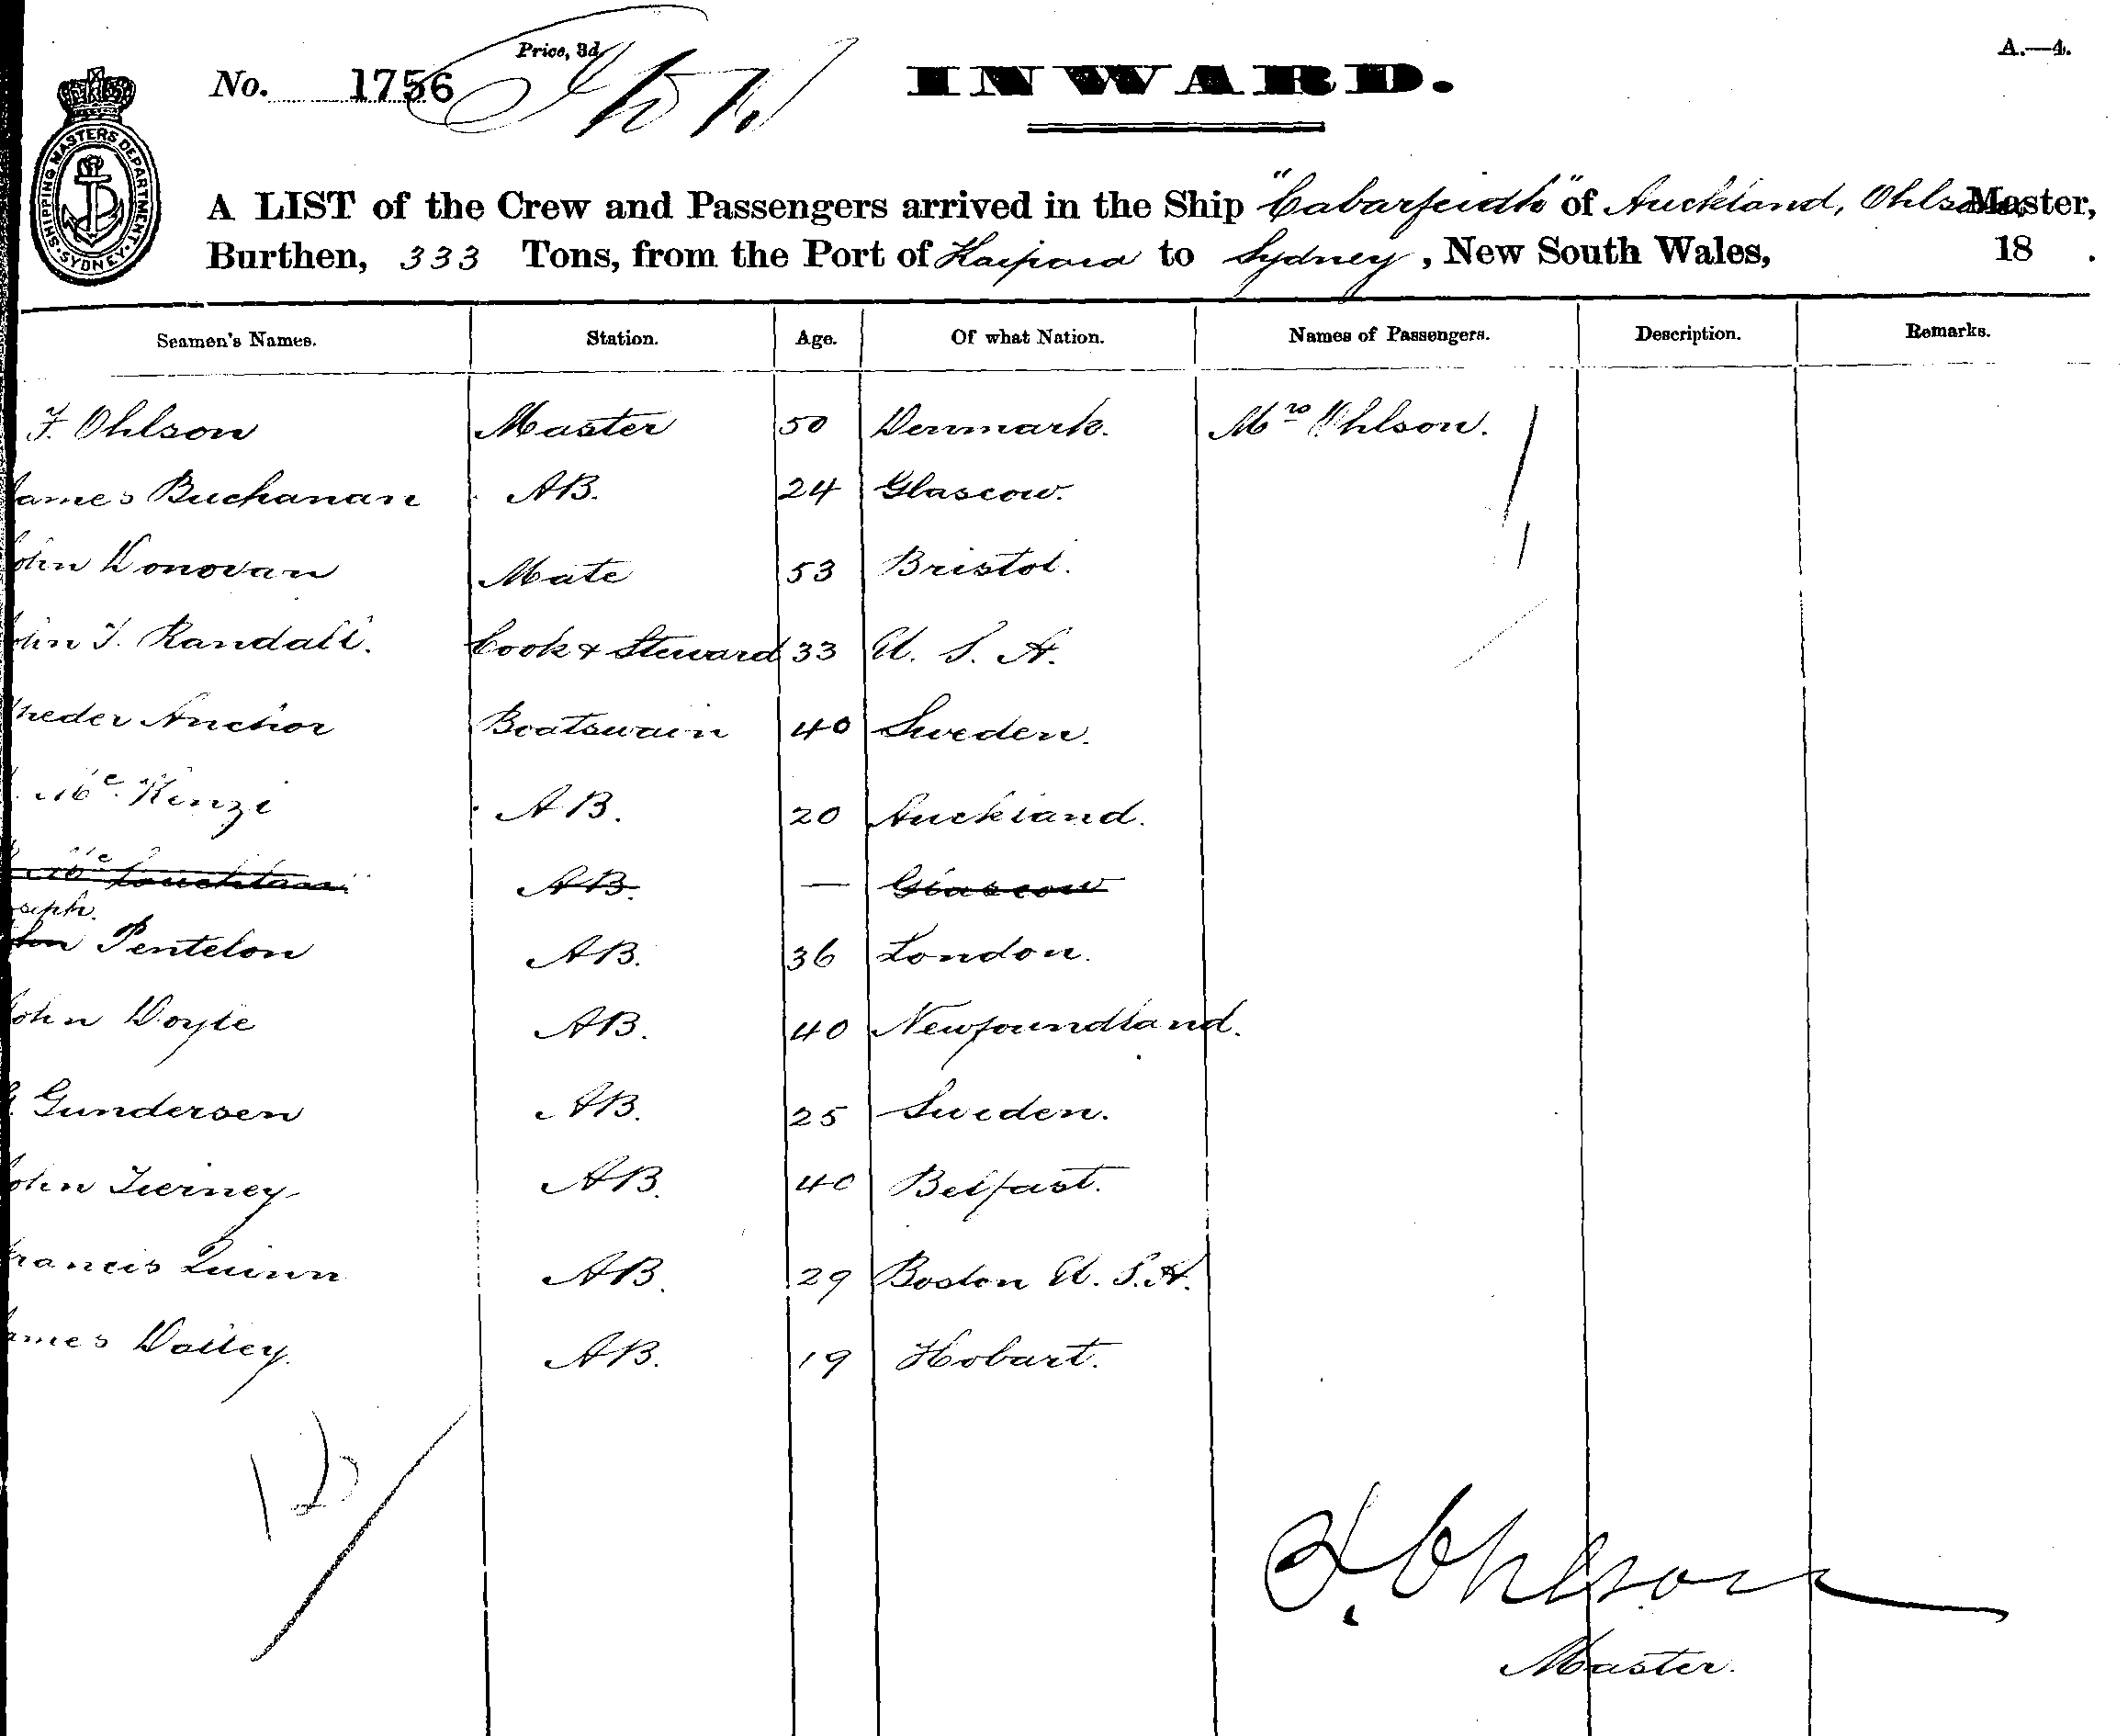 Price, 3d.
A.—4.
No. 1756
INWARD.
SHIPPING MASTERS DEPARTMENT · SYDNEY ·
A LIST of the Crew and Passengers arrived in the Ship "Cabarfeidh" of Auckland, Ohlson, Master,
Burthen, 333 Tons, from the Port of Kaipara to Sydney, New South Wales, 18 .
Seamen's Names. Station. Age. Of what Nation. Names of Passengers. Description. Remarks.
F. Ohlson Master 50 Denmark. Mrs Ohlson. /
James Buchanan AB. 24 Glascow.
John Donovan Mate 53 Bristol.
John T. Randall. Cook & Steward 33 U. S. A.
Anchor Boatswain 40 Sweden.
Mc. Kenzi AB. 20 Auckland.
Mc AB. — Glascow
Joseph.
John Pentelon AB. 36 London.
John Doyle AB. 40 Newfoundland.
Gundersen AB. 25 Sweden.
John Tierney AB. 40 Belfast.
Francis Quinn AB. 29 Boston U. S. A.
James Dailey. AB. 19 Hobart.
12
F. Ohlson
Master.